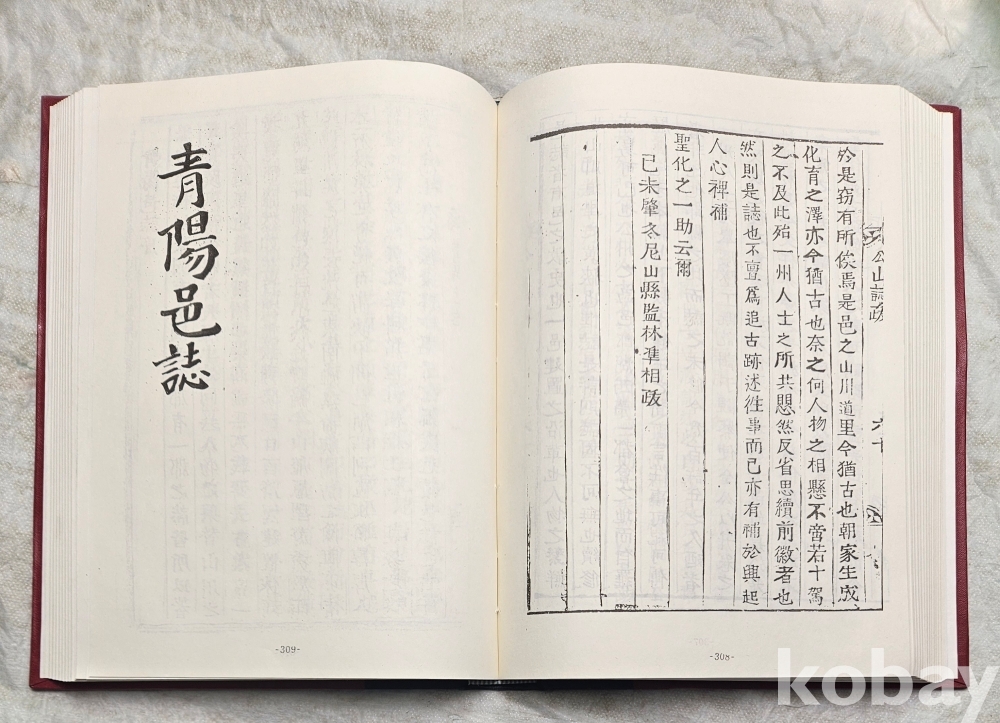 公山誌跋
六十
於是窃有所俟焉是邑之山川道里今猶古也朝家生成
化育之澤亦今猶古也奈之何人物之相懸不啻若十駕
之不及此殆一州人士之所共愳然反省思續前徽者也
然則是誌也不亶爲追古跡述往事而已亦有補於興起
人心裨補
聖化之一助云爾
己未肇冬尼山縣監林準相跋
-308-
靑陽邑誌
-309-
kobay